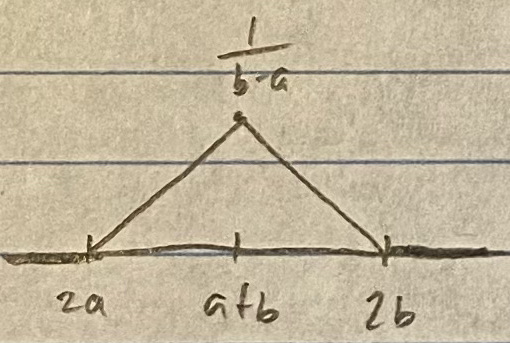 1
b-a
2a a+b 2b